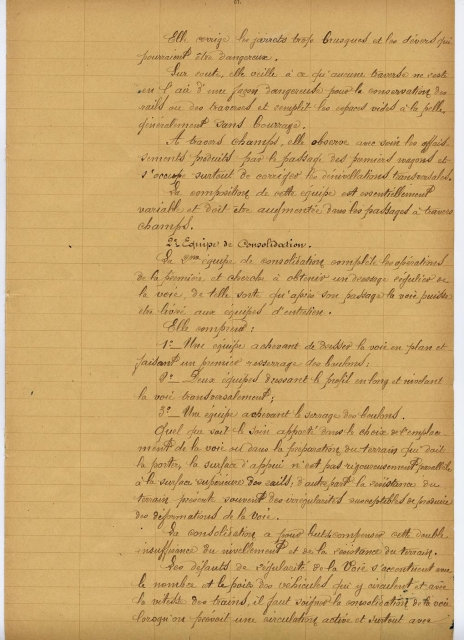 Elle corrige les jarrets trop brusques et les dévers qui
pourraient être dangereux.
Sur route, elle veille à ce qu'aucune traverse ne reste
en l'air d'une façon dangereuse pour la conservation des
rails ou des traverses et remplit les espaces vides à la pelle,
généralement sans bourrage.
A travers champs, elle observe avec soin les affais-
sements produits par le passage des premiers wagons et
s'occupe surtout de corriger les dénivellations transversales.
La composition de cette équipe est essentiellement
variable et doit être augmentée dans les passages à travers
champs.
2º Equipe de Consolidation.
La 2me équipe de consolidation complète les opérations
de la première et cherche à obtenir un dressage régulier de
la voie, de telle sorte qu'après son passage la voie puisse
être livrée aux équipes d'entretien.
Elle comprend :
1º- Une équipe achevant de dresser la voie en plan et
faisant un premier resserrage des boulons ;
2º- Deux équipes dressant le profil en long et
la voie transversalement ;
3º- Une équipe achevant le serrage des boulons.
Quel que soit le soin apporté dans le choix de l'emplace-
ment de la voie ou dans la préparation du terrain qui doit
la porter, la surface d'appui n'est pas rigoureusement parallèle
à la surface supérieure des rails ; d'autre part la résistance du
terrain présente souvent des irrégularités susceptibles de produire
des déformations de la voie.
La consolidation a pour but de compenser cette double
insuffisance du nivellement et de la résistance du terrain.
Les défauts de régularité de la Voie s'accentuent avec
le nombre et le poids des véhicules qui y circulent et avec
la vitesse des trains, il faut soigner la consolidation de la voie
lorsqu'on prévoit une circulation active et surtout avec